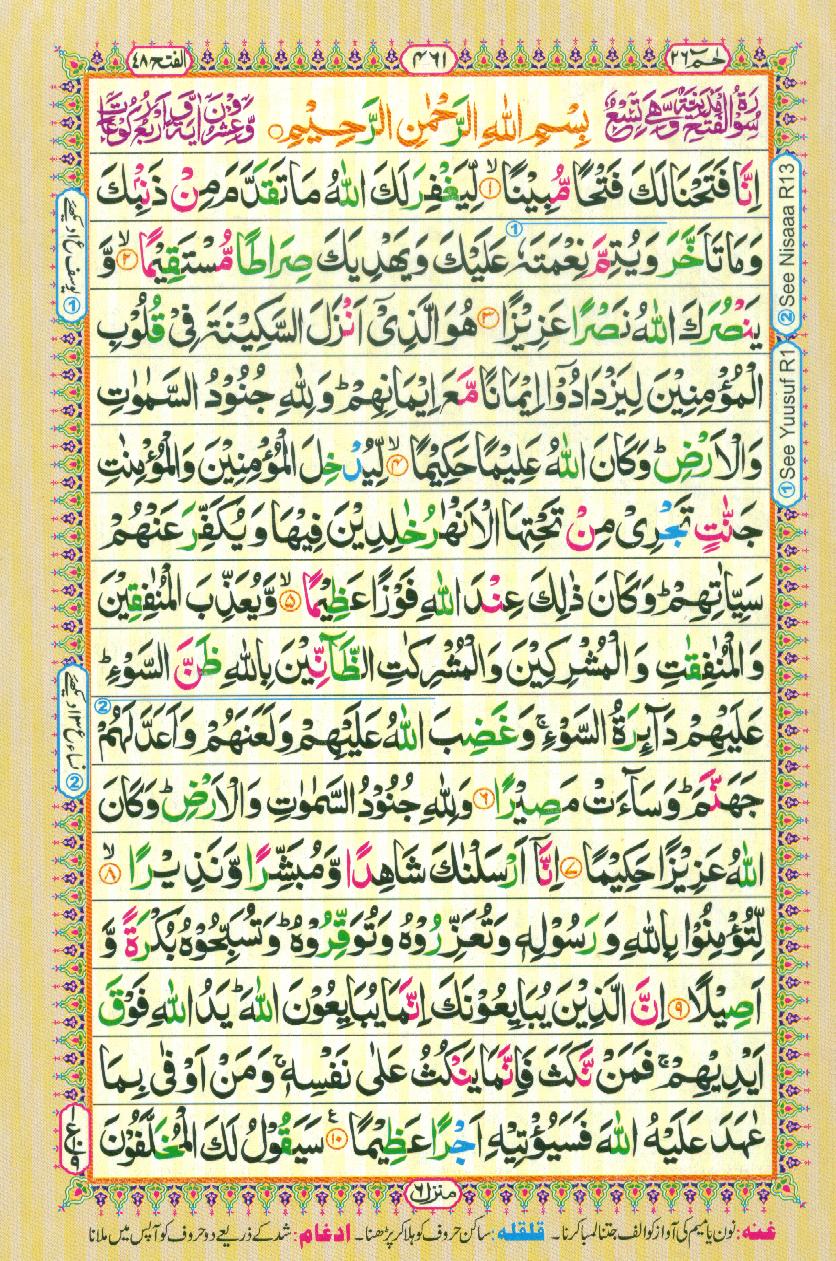 الفتح ٤٨
٤٦١
حٰمٓ ٢٦
سُوْرَةُ الْفَتْحِ مَدَنِيَّةٌ وَّهِيَ تِسْعٌ
بِسْمِ اللّٰهِ الرَّحْمٰنِ الرَّحِيْمِ
وَّعِشْرُوْنَ اٰيَةً وَّاَرْبَعُ رُكُوْعَاتٍ
اِنَّا فَتَحْنَا لَكَ فَتْحًا مُّبِيْنًا ۙ‏﴿۱﴾ لِّيَغْفِرَ لَكَ اللّٰهُ مَا تَقَدَّمَ مِنْ ذَنْۢبِكَ
وَمَا تَاَخَّرَ وَيُتِمَّ نِعْمَتَهٗ عَلَيْكَ وَيَهْدِيَكَ صِرَاطًا مُّسْتَقِيْمًا ۙ‏﴿۲﴾ وَّ
يَنْصُرَكَ اللّٰهُ نَصْرًا عَزِيْزًا ‏﴿۳﴾ هُوَ الَّذِىْۤ اَنْزَلَ السَّكِيْنَةَ فِىْ قُلُوْبِ
الْمُؤْمِنِيْنَ لِيَزْدَادُوْۤا اِيْمَانًا مَّعَ اِيْمَانِهِمْ ؕ وَلِلّٰهِ جُنُوْدُ السَّمٰوٰتِ
وَالْاَرْضِ ؕ وَكَانَ اللّٰهُ عَلِيْمًا حَكِيْمًا ۙ‏﴿۴﴾ لِّيُدْخِلَ الْمُؤْمِنِيْنَ وَالْمُؤْمِنٰتِ
جَنّٰتٍ تَجْرِىْ مِنْ تَحْتِهَا الْاَنْهٰرُ خٰلِدِيْنَ فِيْهَا وَيُكَفِّرَ عَنْهُمْ
سَيِّاٰتِهِمْ ؕ وَكَانَ ذٰلِكَ عِنْدَ اللّٰهِ فَوْزًا عَظِيْمًا ۙ‏﴿۵﴾ وَّيُعَذِّبَ الْمُنٰفِقِيْنَ
وَالْمُنٰفِقٰتِ وَالْمُشْرِكِيْنَ وَالْمُشْرِكٰتِ الظَّآنِّيْنَ بِاللّٰهِ ظَنَّ السَّوْءِ ؕ
عَلَيْهِمْ دَآئِرَةُ السَّوْءِ ۚ وَغَضِبَ اللّٰهُ عَلَيْهِمْ وَلَعَنَهُمْ وَاَعَدَّ لَهُمْ
جَهَنَّمَ ؕ وَسَآءَتْ مَصِيْرًا ‏﴿۶﴾ وَلِلّٰهِ جُنُوْدُ السَّمٰوٰتِ وَالْاَرْضِ ؕ وَكَانَ
اللّٰهُ عَزِيْزًا حَكِيْمًا ‏﴿۷﴾ اِنَّاۤ اَرْسَلْنٰكَ شَاهِدًا وَّمُبَشِّرًا وَّنَذِيْرًا ۙ‏﴿۸﴾
لِّتُؤْمِنُوْا بِاللّٰهِ وَرَسُوْلِهٖ وَتُعَزِّرُوْهُ وَتُوَقِّرُوْهُ ؕ وَتُسَبِّحُوْهُ بُكْرَةً وَّ
اَصِيْلًا ‏﴿۹﴾ اِنَّ الَّذِيْنَ يُبَايِعُوْنَكَ اِنَّمَا يُبَايِعُوْنَ اللّٰهَ ؕ يَدُ اللّٰهِ فَوْقَ
اَيْدِيْهِمْ ۚ فَمَنْ نَّكَثَ فَاِنَّمَا يَنْكُثُ عَلٰى نَفْسِهٖ ۚ وَمَنْ اَوْفٰى بِمَا
عٰهَدَ عَلَيْهُ اللّٰهَ فَسَيُؤْتِيْهِ اَجْرًا عَظِيْمًا ‏﴿۱۰﴾ سَيَقُوْلُ لَكَ الْمُخَلَّفُوْنَ
② See Nisaaa R13
① See Yuusuf R1
منزل ٦
غنه: نون یا میم کی آواز کو الف جتنا لمبا کرنا۔ قلقله: ساکن حروف کو ہلا کر پڑھنا۔ ادغام: شد کے ذریعے دو حروف کو آپس میں ملانا